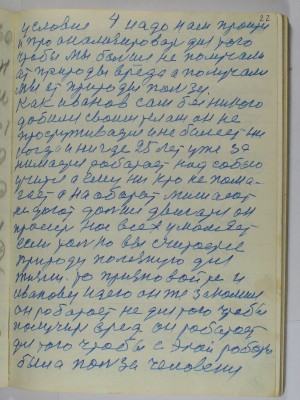 22
условия 4 надо нам пройти
и проанализировать для того
чтобы мы больше не получали
от природы вреда а получали
мы от природы пользу.
Как иванов сам бы
добился своим телом он не
простуживается и не болеет ни
когда и ни где 25 лет уже за
нимается работает над собою
учится а ему ни кто не пома-
гает а на оборот мешают
не дают дольше двигаться он
просит нас всех умоляет
если только вы считаете
природу полезную для
жизни. то признавайте и
иванову идею он же законно
он работает не для того чтобы
получить вред он работает
для того чтобы с этой работы
была польза человеку